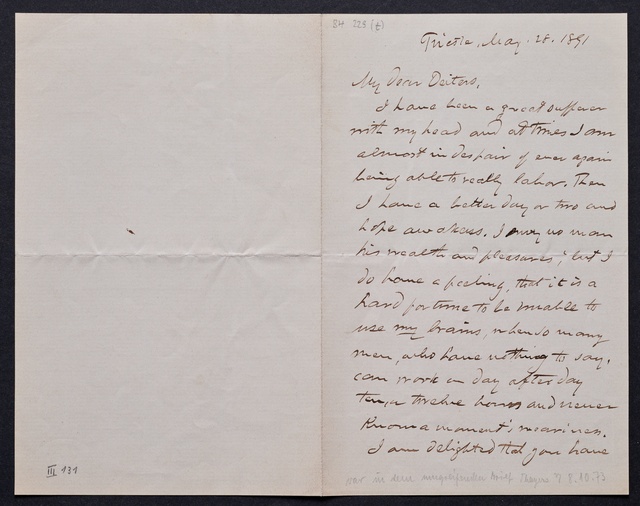 BH 223 (t)
Trieste, May. 28. 1891
My dear Deiters,
I have been a great sufferer
with my head and at times I am
almost in despair of ever again
being able to really labor. Then
I have a better day or two and
hope awakes. I envy no man
his wealth and pleasures; but I
do have a feeling, that it is a
hard fortune to be unable to
use my brains, when so many
men, who have nothing to say,
can work on day after day
ten, a twelve hours and never
know a moment's weariness.
I am delighted that you have
III 131
war in dem Brief 8.10.77